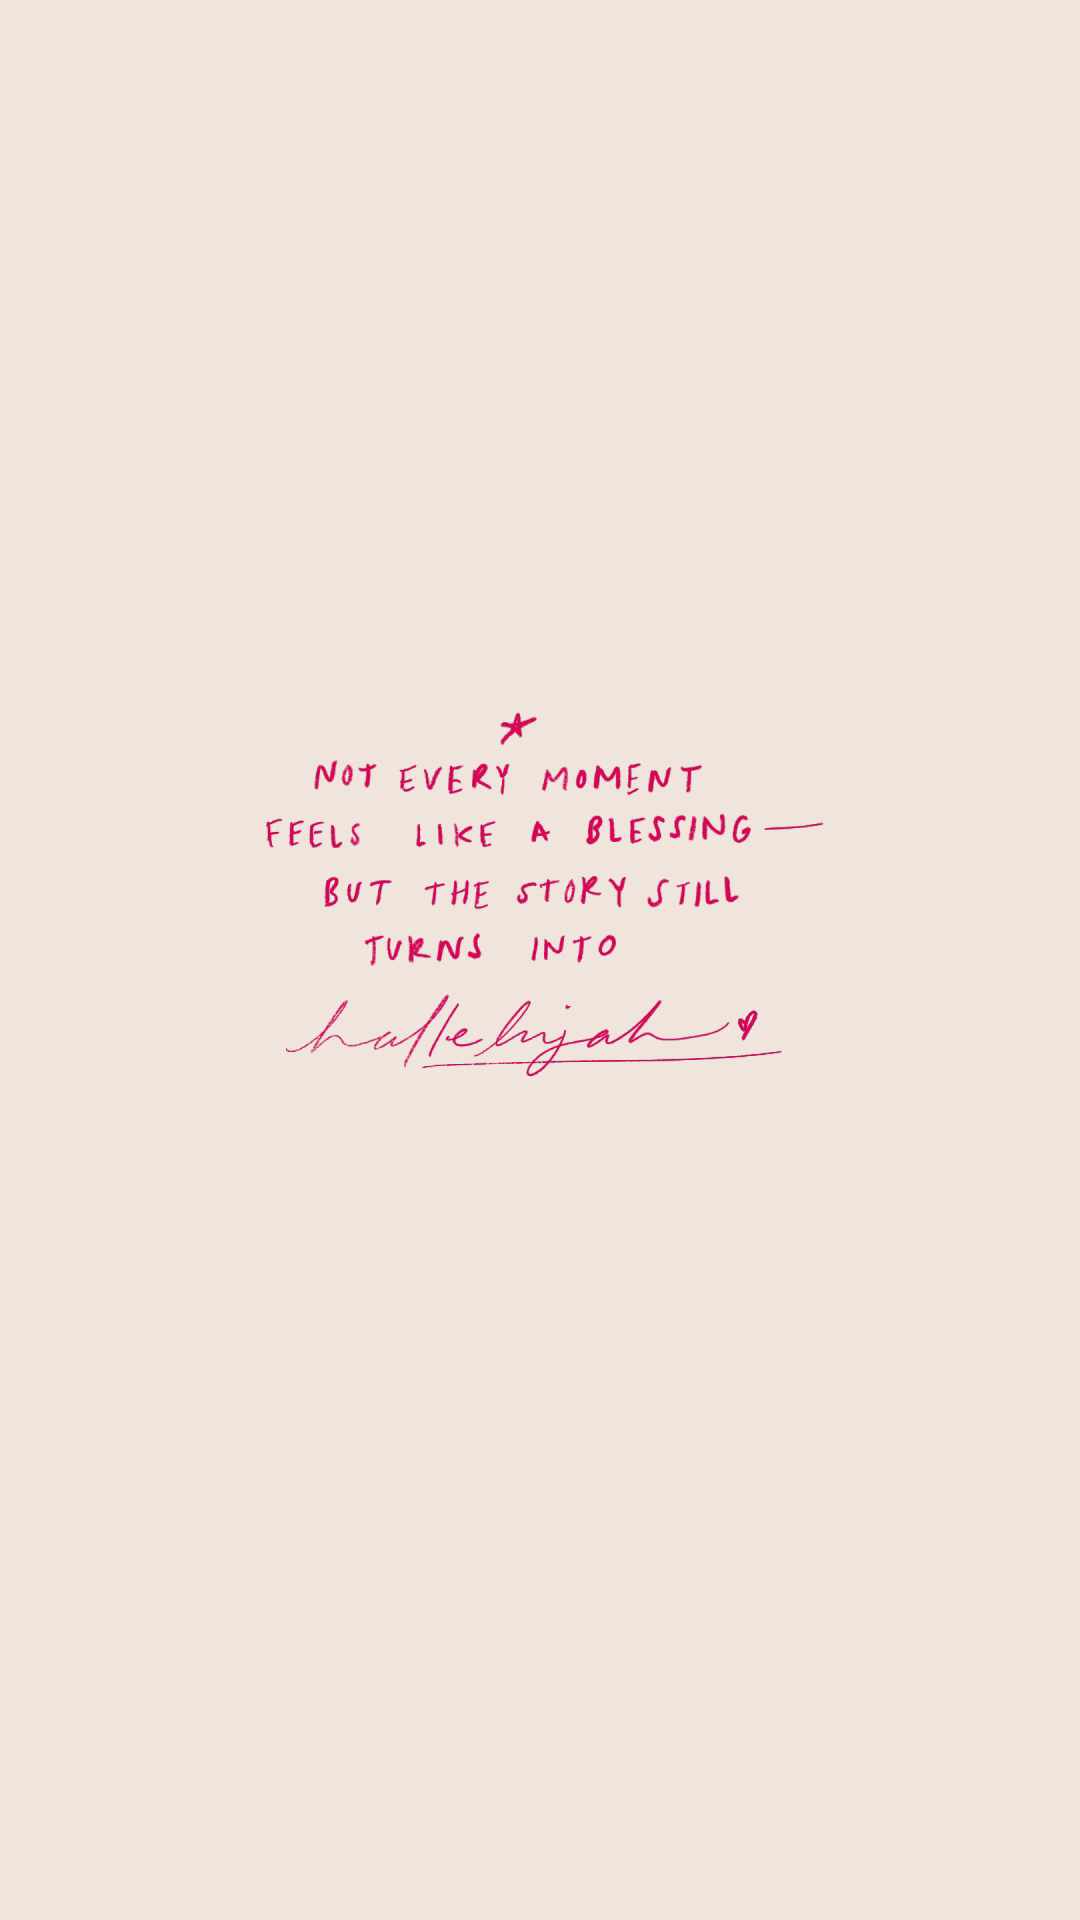 NOT EVERY MOMENT
FEELS LIKE A BLESSING—
BUT THE STORY STILL
TURNS INTO
hallelujah